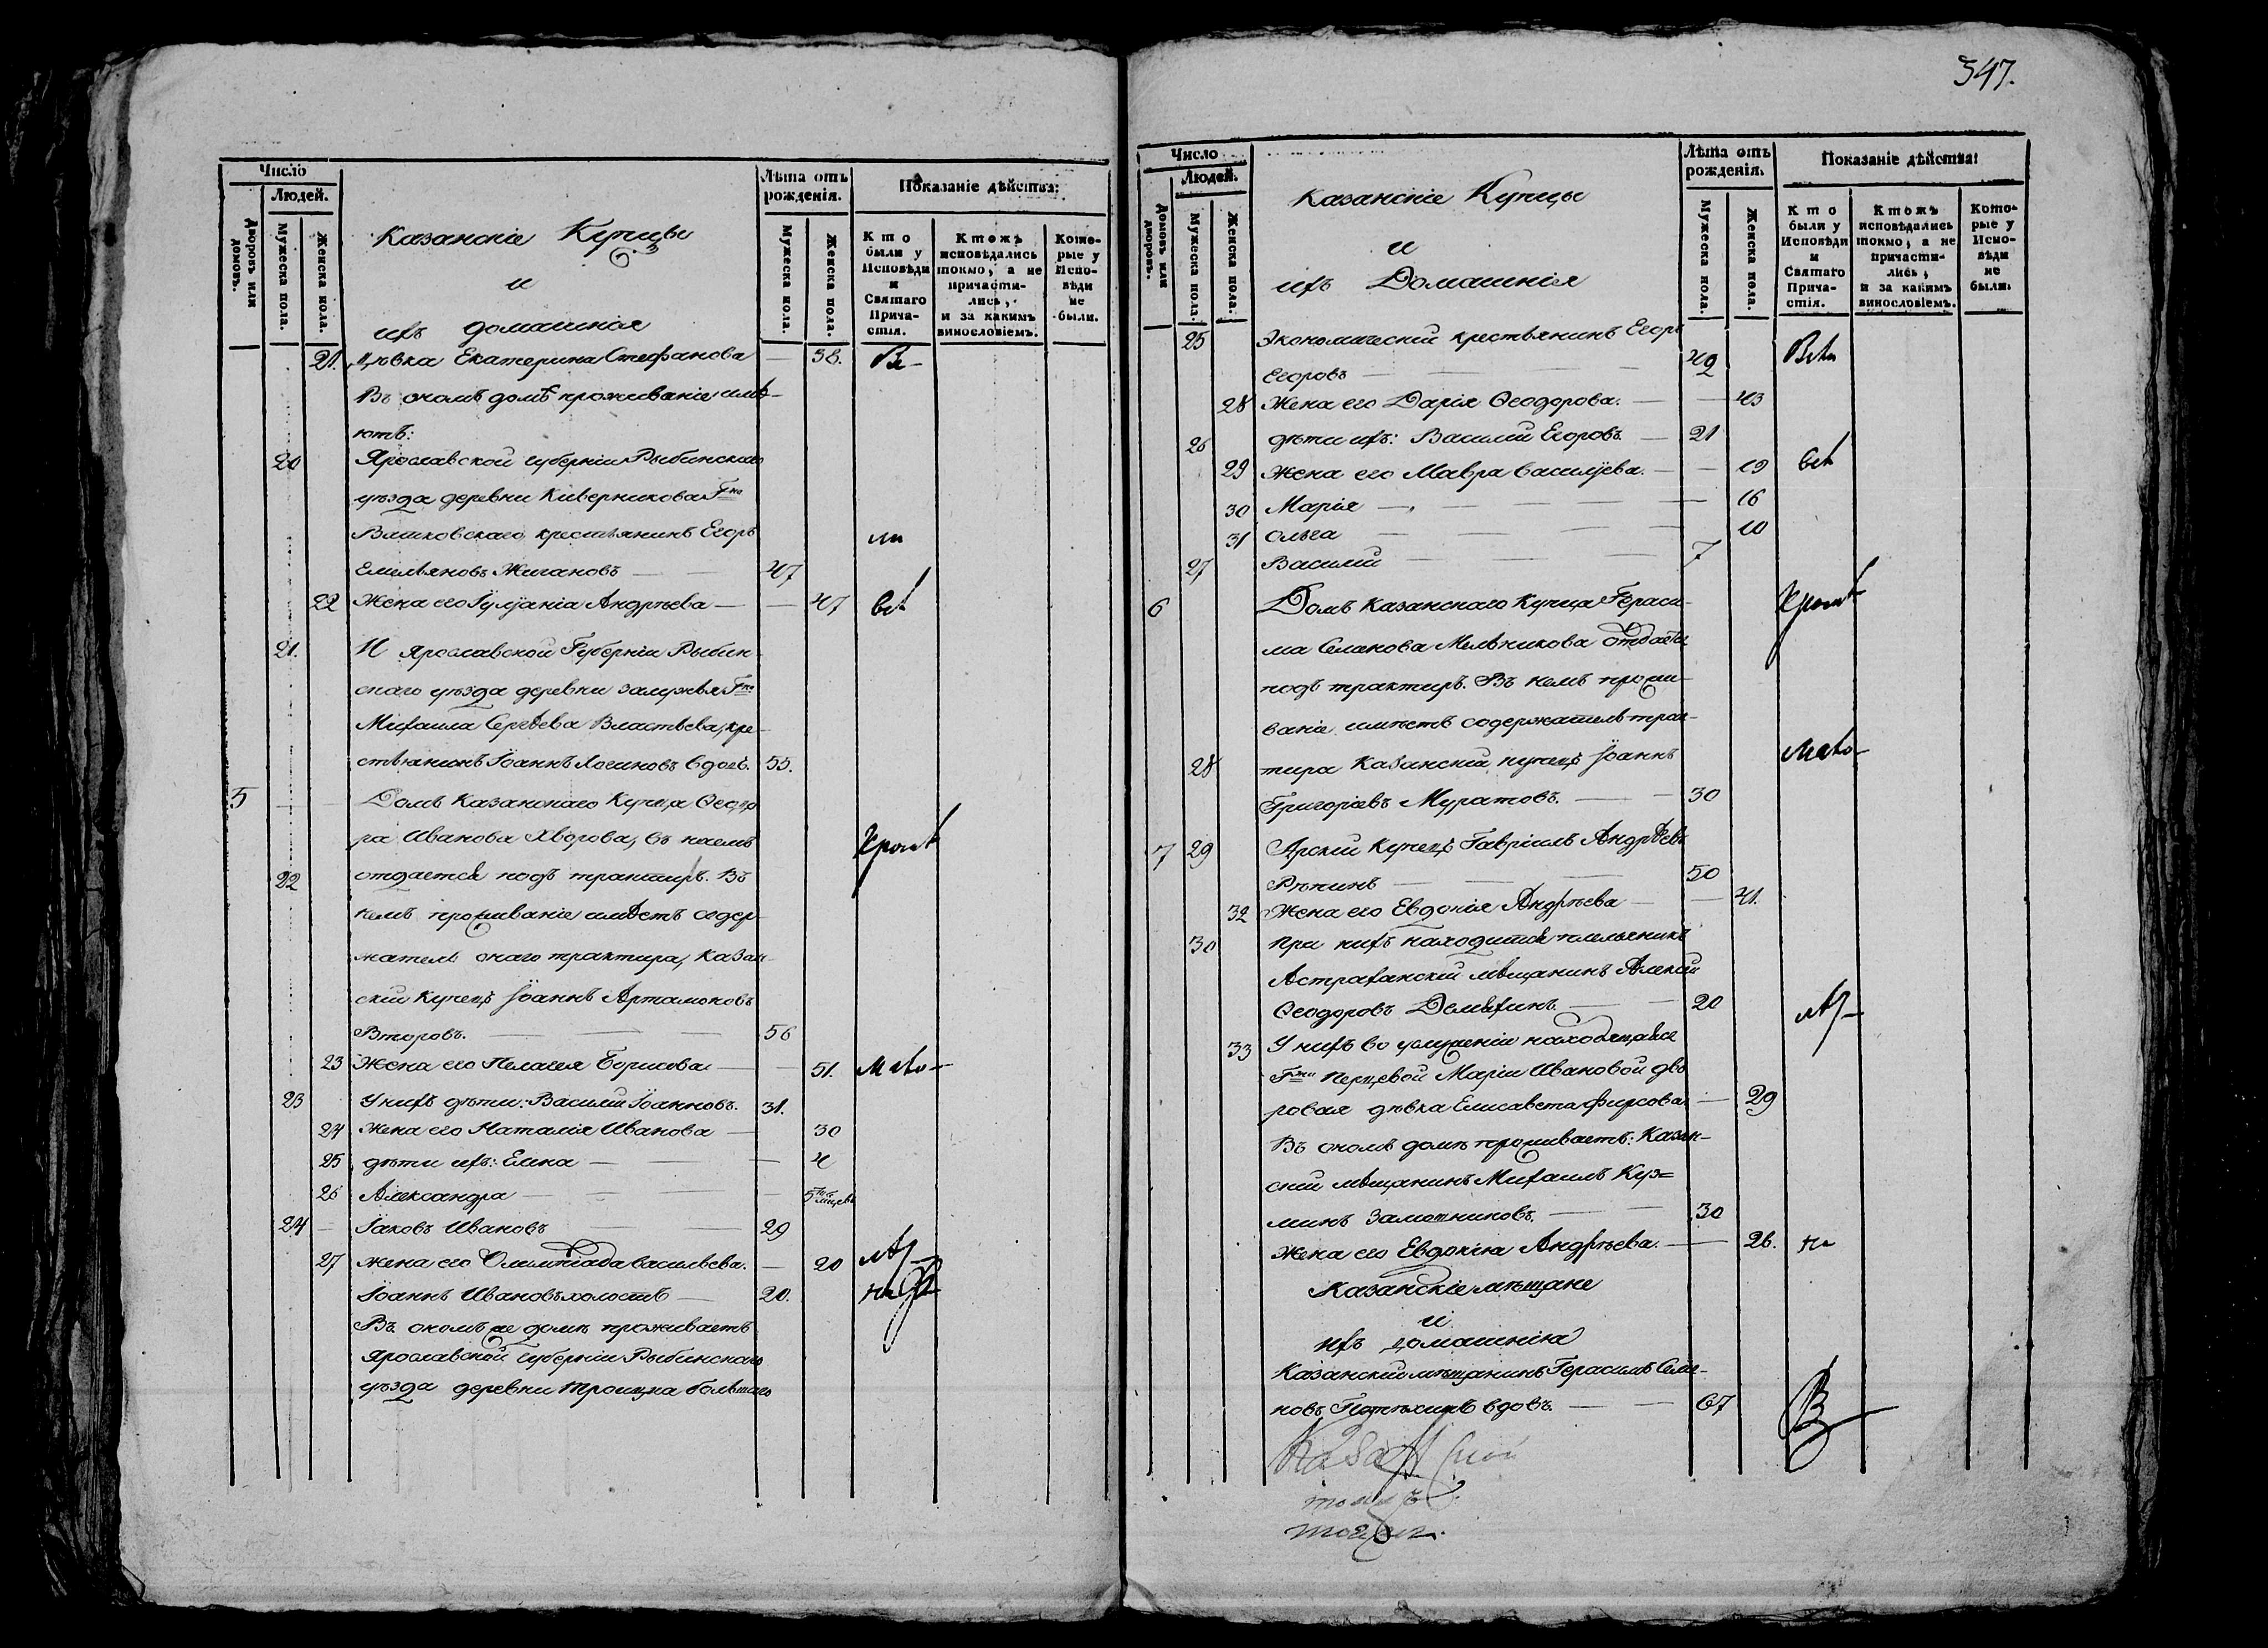 347.
Число
Людей.
Дворовъ или домовъ.
Мужеска пола.
Женска пола.
Казанскіе Купцы
и
ихъ домашнія
Лѣта отъ рожденія.
Мужеска пола.
Женска пола.
Показаніе дѣйства:
Кто были у Исповѣди и Святаго Причастія.
Ктожъ исповѣдались токмо, а не причастились, и за какимъ винословіемъ.
Которые у Исповѣди не были.
21. дѣвка Екатерина Стефанова — 38.
Въ ономъ домѣ проживаніе имѣ-
ютъ:
20 Ярославской губерніи Рыбинскаго
уѣзда деревни Киверникова Гно
крестьянинъ Егоръ
Емельяновъ Жигановъ — 47
22 Жена его Іуліаніа Андрѣева — 47
21. И Ярославской Губерніи Рыбин
скаго уѣзда деревни Гна
Михаила Сергѣева Властьева, кре-
стьянинъ Іоаннъ Логиновъ вдовъ. 55.
5 Домъ Казанскаго Купца Ѳеодо
ра Иванова Хворова, въ наемъ
22 отдается подъ трактиръ. Въ
немъ проживаніе имѣетъ содер
жатель онаго трактира, Казан-
скій Купецъ Іоаннъ Артамоновъ
Второвъ. — 56
23 Жена его Пелагея Борисова — 51.
23 У нихъ дѣти: Василій Іоанновъ. 31.
24 Жена его Наталія Иванова — 30
25 дѣти ихъ: Елена — 4
26 Александра — 5
24 Іаковъ Ивановъ — 29
27 жена его Олимпіада Васильева. — 20
Іоаннъ Ивановъ холостъ — 20.
Въ ономъ же домѣ проживаетъ
Ярославской Губерніи Рыбинскаго
уѣзда деревни Троицка большаго
Число
Людей.
Домовъ или дворовъ.
Мужеска пола.
Женска пола.
Казанскіе Купцы
и
ихъ Домашнія
Лѣта отъ рожденія.
Мужеска пола.
Женска пола.
Показаніе дѣйства:
Кто были у Исповѣди и Святаго Причастія.
Ктожъ исповѣдались токмо, а не причастились, и за какимъ винословіемъ.
Которые у Исповѣди не были.
25 Экономическій крестьянинъ Егоръ
Егоровъ — 49
28 Жена его Дарія Ѳеодорова. — 43
26 дѣти ихъ: Василій Егоровъ — 21
29 Жена его Мавра Васильева. — 19
30 Марія — 16
31 Ольга — 10
27 Василій — 7
6 Домъ Казанскаго Купца Гераси-
ма Мельникова отдается
подъ трактиръ. Въ немъ прожи-
ваніе имѣетъ содержатель трак-
28 тира Казанскій купецъ Іоаннъ
Григоріевъ Муратовъ. — 30
7 29 Арскій Купецъ Гавріилъ Андрѣевъ
Рѣпинъ — 50
32 Жена его Евдокія Андрѣева — 41.
30 При нихъ находится племянникъ
Астраханскій мѣщанинъ Алексій
Ѳеодоровъ — 20
33 У нихъ во услуженіи находящаяся
Гжи Перцевой Маріи Ивановой дво
ровая дѣвка Елисавета Фирсова — 29
Въ ономъ домѣ проживаетъ: Казан-
скій мѣщанинъ Михаилъ Куз=
минъ Замотниковъ. — 30
Жена его Евдокіа Андрѣева. — 26.
Казанскіе мѣщане
и
ихъ домашніа
Казанскій мѣщанинъ Герасимъ Семе-
новъ вдовъ. — 67